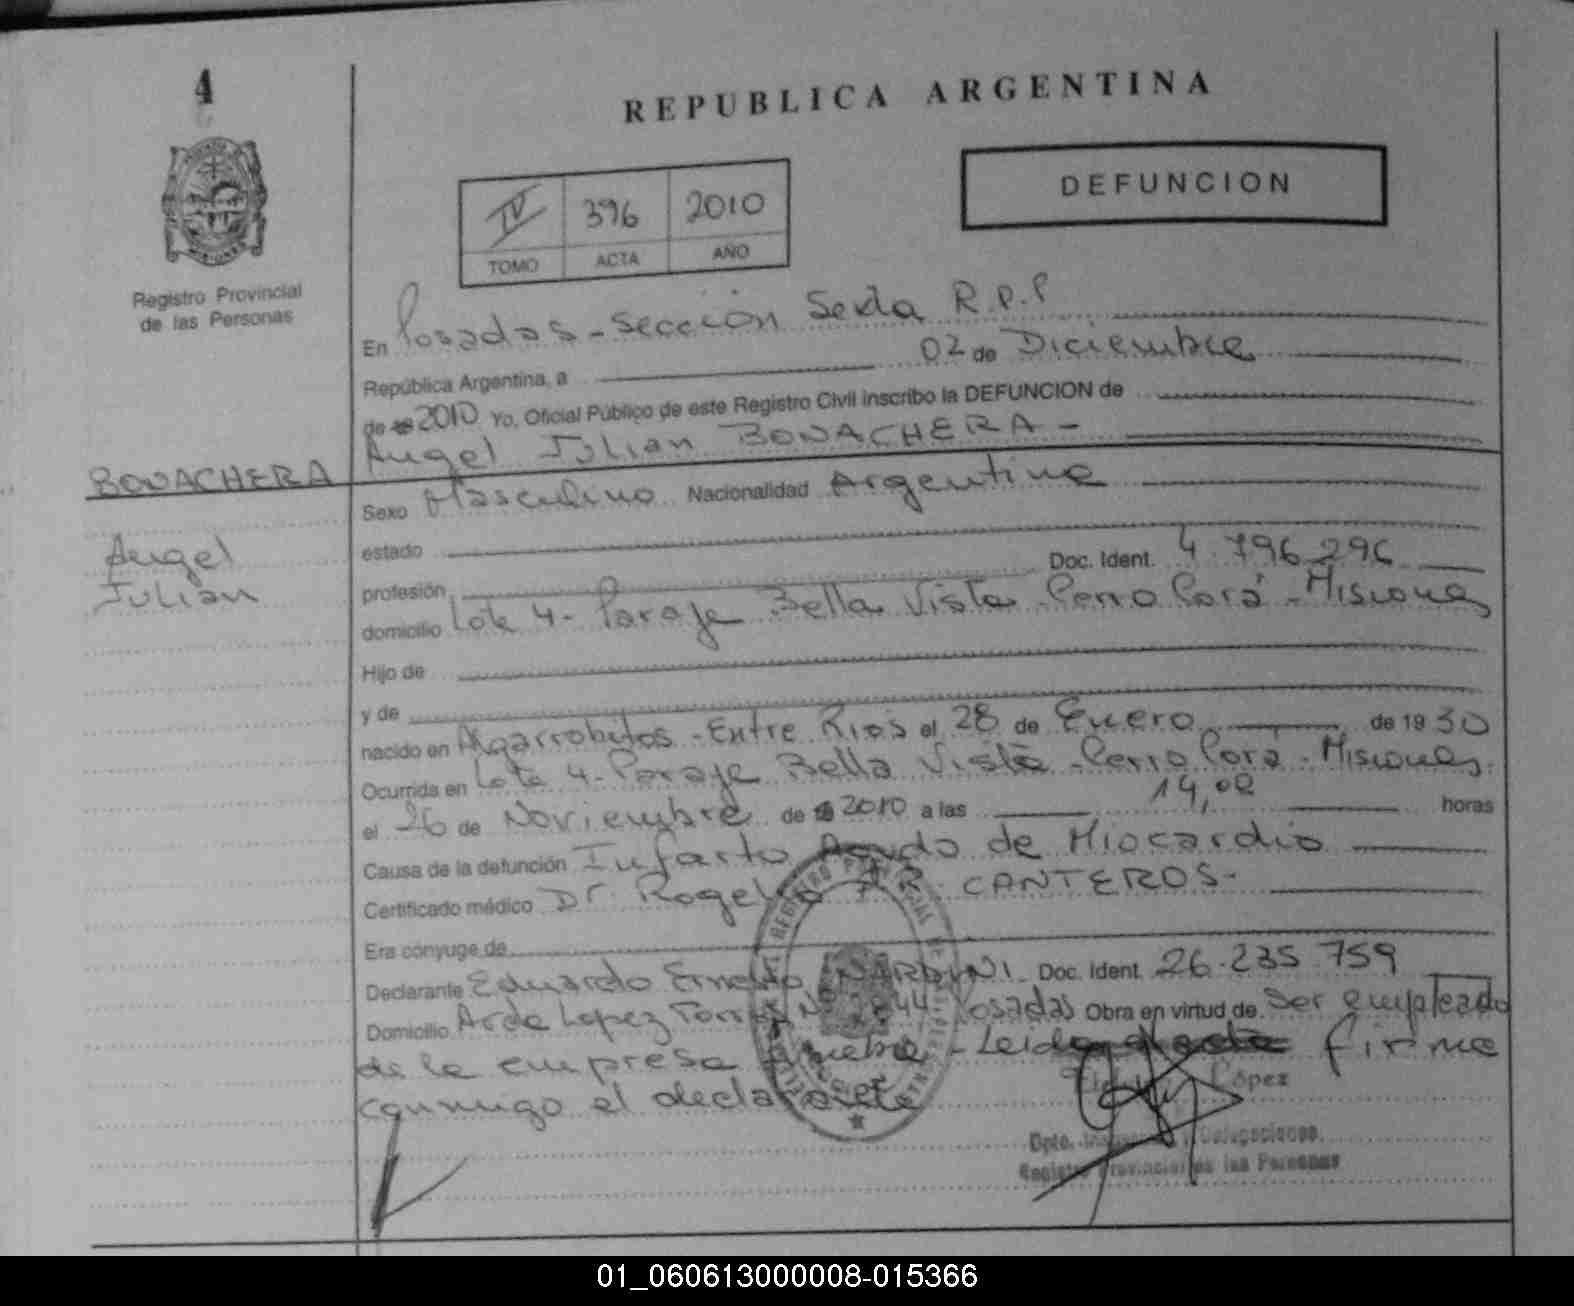 4
REPUBLICA ARGENTINA
DEFUNCION
IV 396 2010
TOMO ACTA AÑO
Registro Provincial
de las Personas
En Posadas - Sección Sexta R.P.P
República Argentina, a 02 de Diciembre
de 2010 Yo, Oficial Público de este Registro Civil inscribo la DEFUNCION de
Angel Julian BONACHERA -
BONACHERA
Angel
Julian
Sexo Masculino Nacionalidad Argentina
estado
profesión Doc. Ident. 4.796.296
domicilio Lote 4 - Paraje Bella Vista Cerro Corá - Misiones
Hijo de
y de
nacido en Algarrobitos - Entre Rios el 28 de Enero de 1930
Ocurrida en Lote 4 - Paraje Bella Vista - Cerro Corá - Misiones.
el 26 de Noviembre de 2010 a las 14,00 horas
Causa de la defunción Infarto Agudo de Miocardio
Certificado médico Dr. Rogelio R. CANTEROS -
Era cónyuge de
Declarante Eduardo Ernesto NARDINI Doc. Ident. 26.235.759
Domicilio Avda Lopez Torres Posadas Obra en virtud de ser empleado
de la empresa funebre - Leida firma
conmigo el declarante
López
Dpto. Delegaciones
Registro Provincial de las Personas
01_060613000008-015366